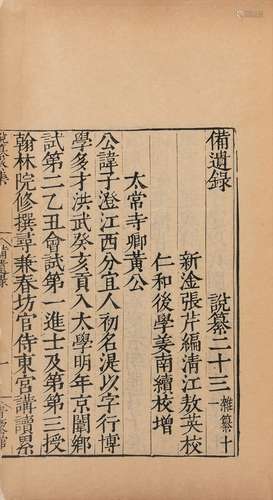 備遺錄　說纂二十三 雜纂十一
新淦張芹編清江敖英校
仁和後學姜南續校增
太常寺卿黃公
公諱子澄江西分宜人初名湜以字行博
學多才洪武癸亥貢入太學明年京闈鄉
試第二乙丑會試第一進士及第第三授
翰林院修撰尋兼春坊官侍東宮講讀累
備遺錄